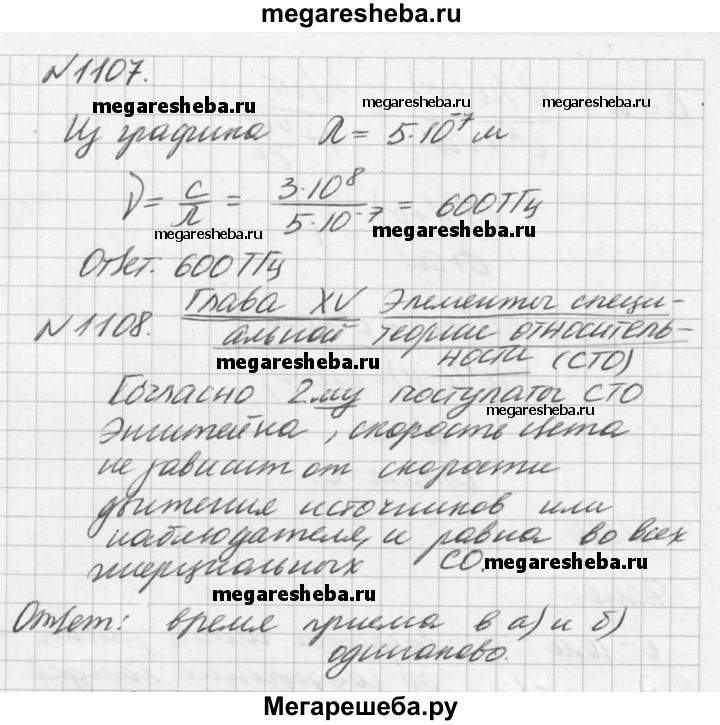 megaresheba.ru
№1107.
megaresheba.ru megaresheba.ru megaresheba.ru
Из графика λ = 5·10⁻⁷ м
ν = c/λ = 3·10⁸/5·10⁻⁷ = 600 ТГц
megaresheba.ru megaresheba.ru
Ответ. 600 ТГц
Глава XV Элементы специ-
№1108. альной теории относитель-
ности (СТО)
megaresheba.ru
Согласно 2му постулату СТО
megaresheba.ru
Энштейна, скорость света
не зависит от скорости
движения источников или
наблюдателя, и равна во всех
инерциальных СО.
megaresheba.ru
megaresheba.ru
Ответ: время приема в а) и б)
одинаково.
Мегарешеба.ру